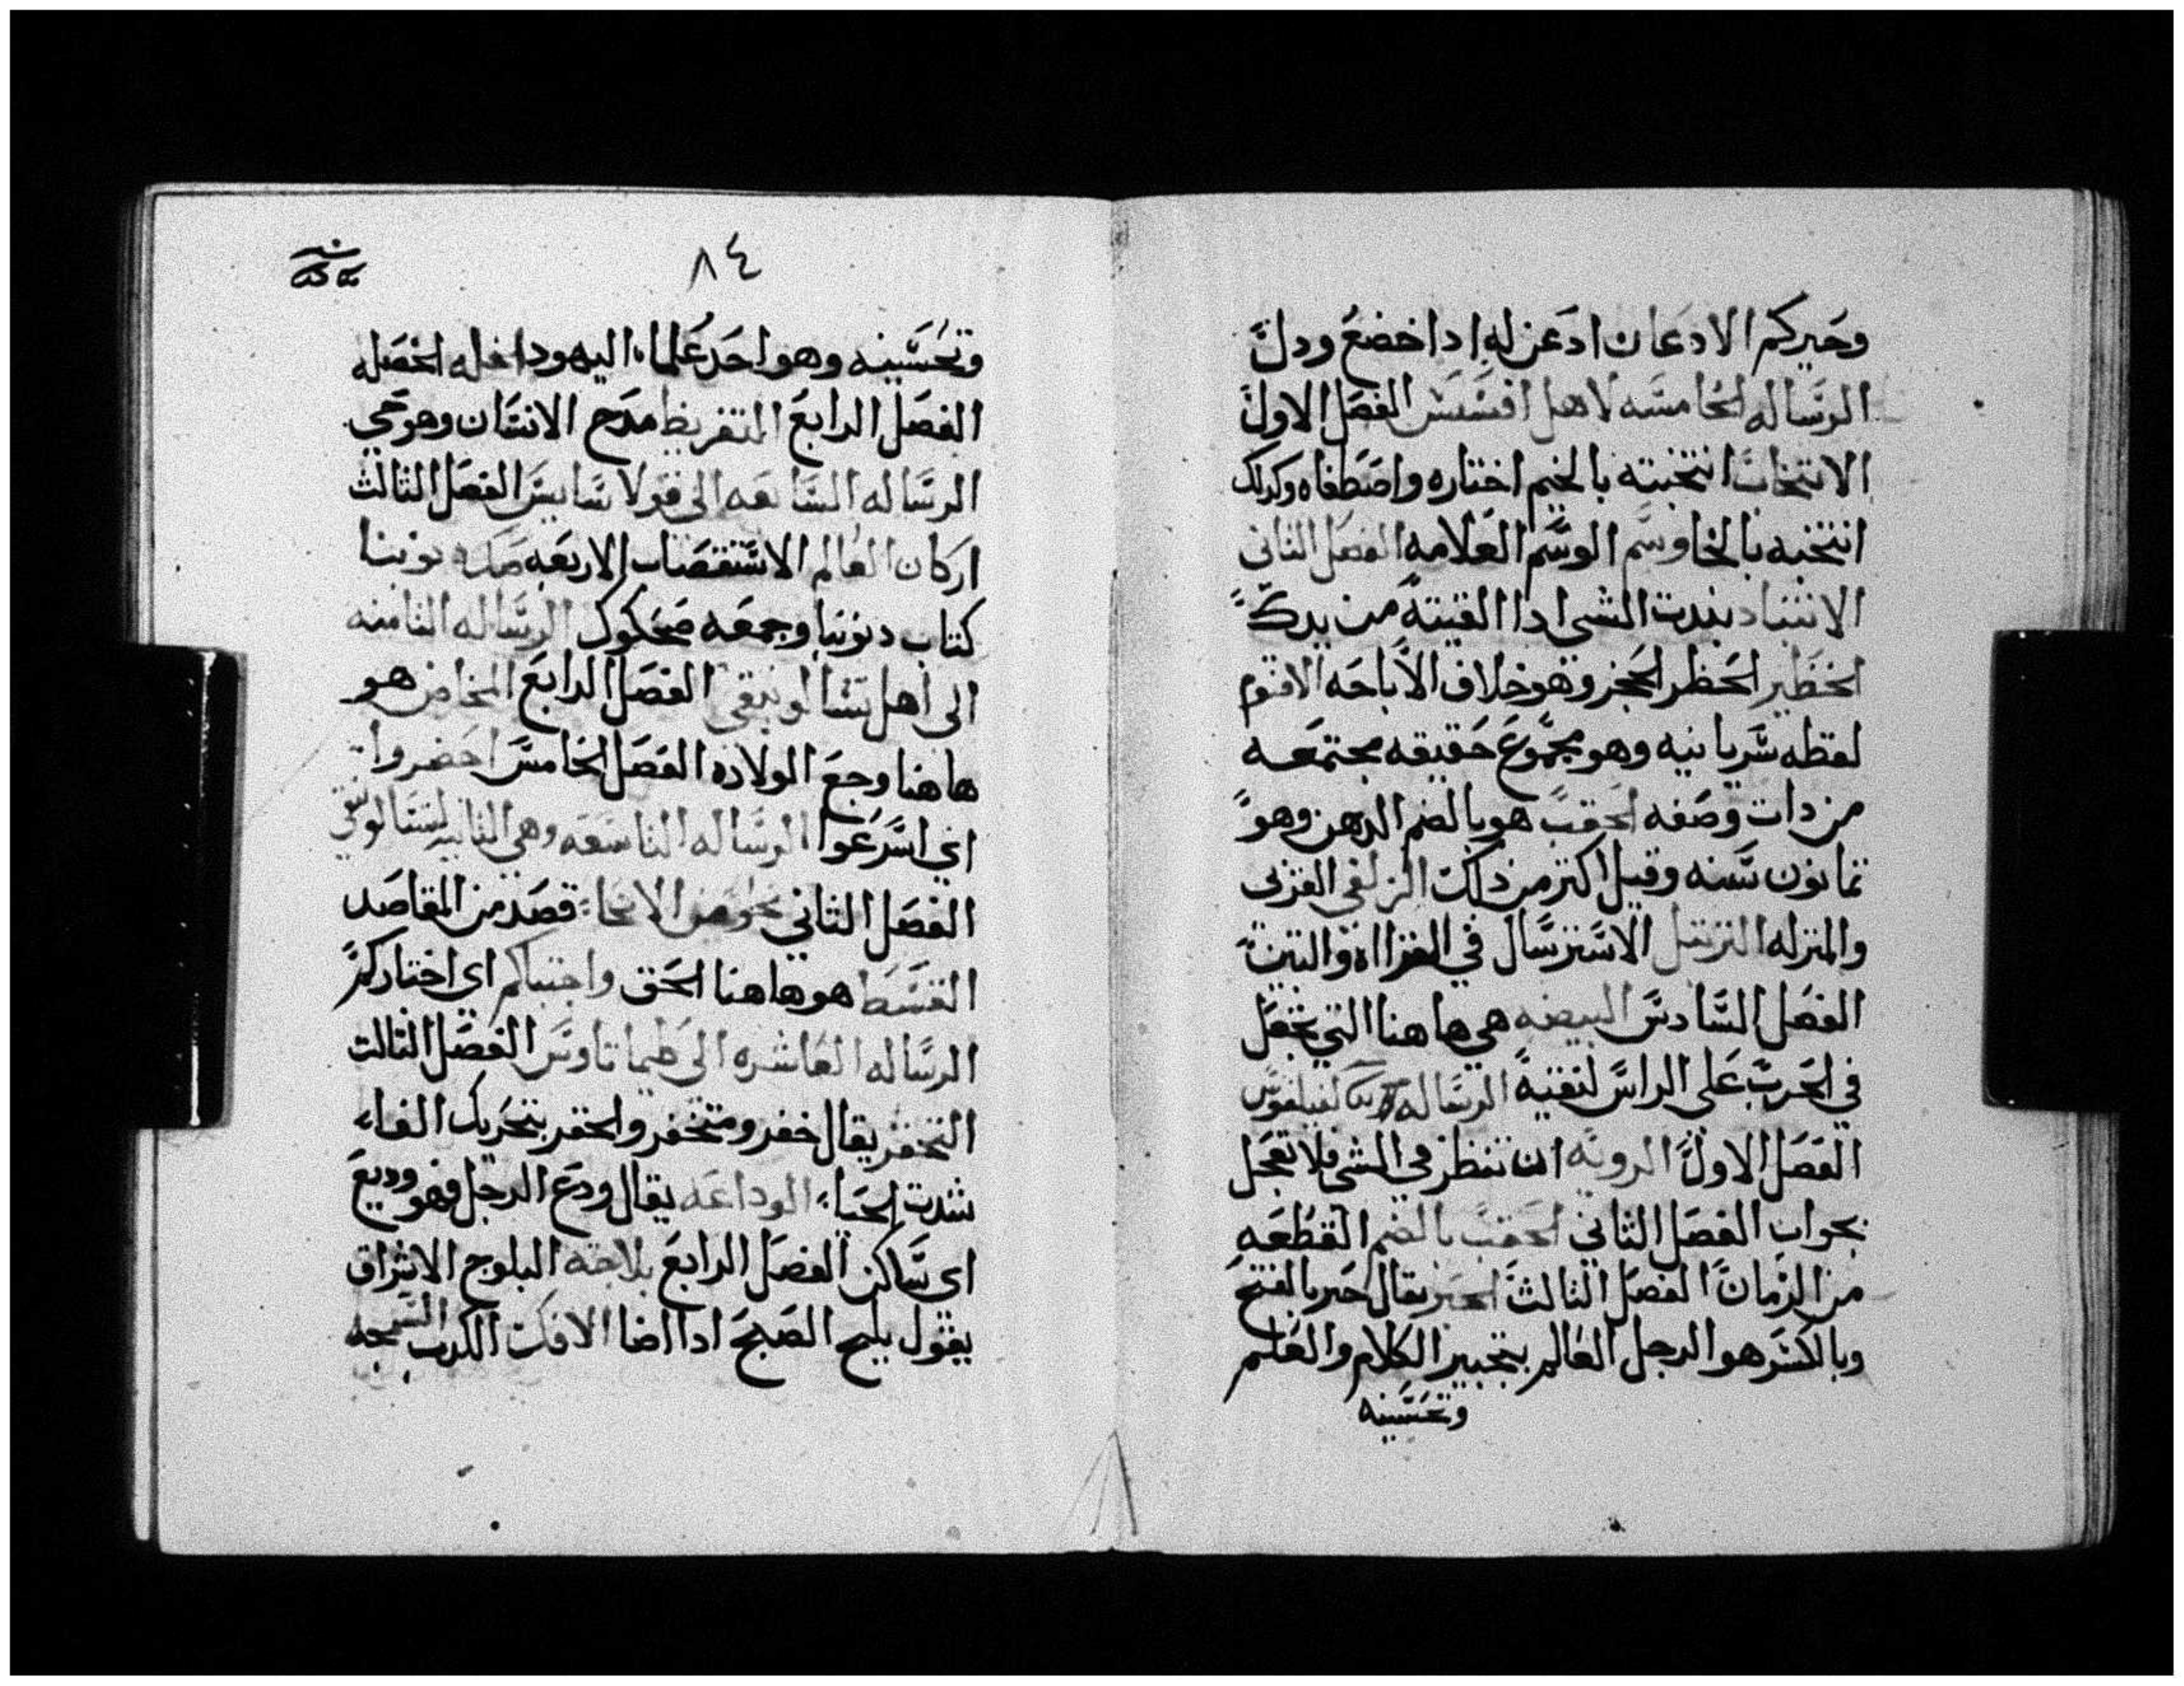 وخيركم الادعان ادعن له ادا خضع ودل
الرساله الخامسه لاهل افسس الفصل الاول
الانتخاب انتخبته بالخيم اختاره واصطفاه وكدلك
انتخبه بالخا وسم الوسم العلامه الفصل الثاني
الانتباد نبدت الشي ادا القيته من يدك
الحظير الحظر الحجز وهو خلاف الاباحه الاقنوم
لفظه سريانيه وهو مجموع حقيقه مجتمعه
من دات وصفه الحقب هو بالضم الدهر وهو
تمانون سنه وقيل اكتر من ذلك الزلفي القربي
والمنزله الترتيل الاسترسال في القرااه والتبين
الفصل السادس البيضه هي هاهنا التي تجعل
في الحرب علي الراس لتقيه الرساله لفيلفوس
الفصل الاول الرويه ان تنظر في الشي فلا تعجل
بجواب الفصل الثاني الحقب بالضم القطعه
من الزمان الفصل الثالث الحبر يقال حبر بالفتح
وبالكسر هو الرجل العالم بتحبير الكلام والعلم
وتحسينه
٨٤
وتحسينه وهو احد علماء اليهود الخصله
الفصل الرابع التقريظ مدح الانسان وهو حي
الرساله السابعه الي قولاسايس الفصل الثالث
اركان العالم الاستقصات الاربعه
كتاب وجمعه صكوك الرساله الثامنه
الي اهل تسالونيقي الفصل الرابع المخاض هو
هاهنا وجع الولاده الفصل الخامس احضروا
اي اسرعوا الرساله التاسعه وهي الثانيه لتسالونيقي
الفصل الثاني نحو من الانحاء قصد من المقاصد
القسط هو هاهنا الحق واجتباكم اي اختاركم
الرساله العاشره الي طيماتاوس الفصل الثالت
التخفر يقال خفر ومتخفر والخفر بتحريك الفاء
شدت الحياء الوداعه يقال ودع الرجل فهو وديع
اي ساكن الفصل الرابع بلاجه البلوج الاشراق
يقول بلج الصبح ادا اضا الافك الكدب